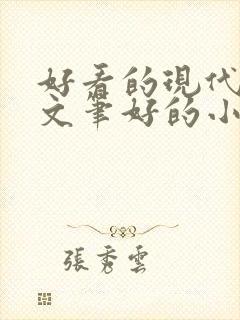 好看的現代
文筆好的小
張秀雲